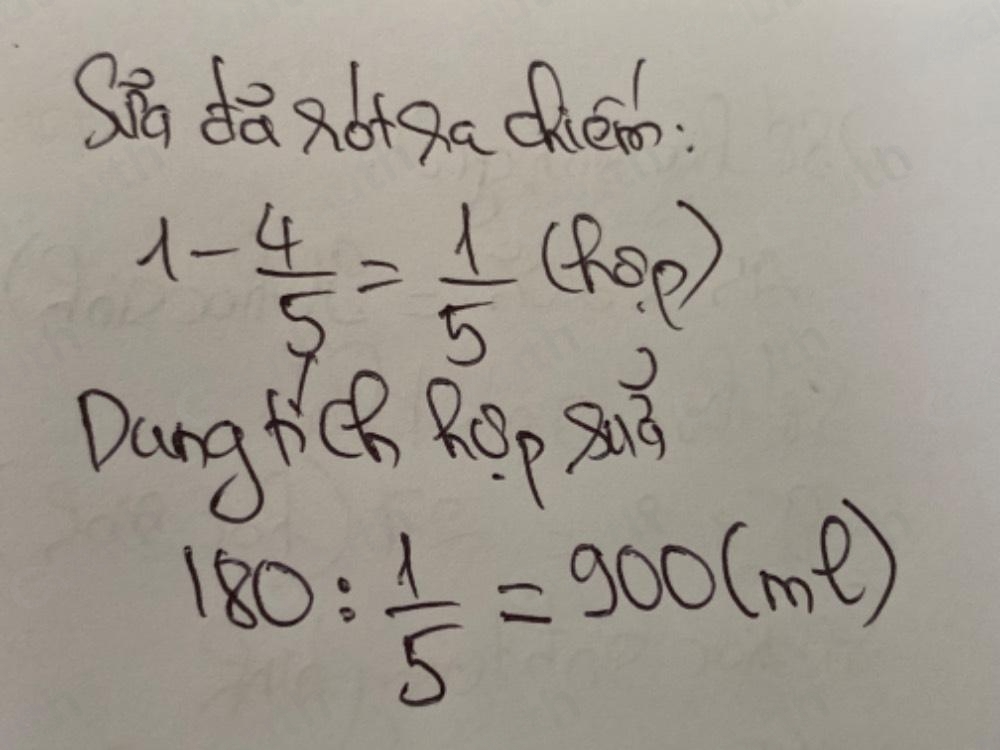 Sữa đã rót ra chiếm:
1 - 4/5 = 1/5 (hộp)
Dung tích hộp sữa
180 : 1/5 = 900 (ml)